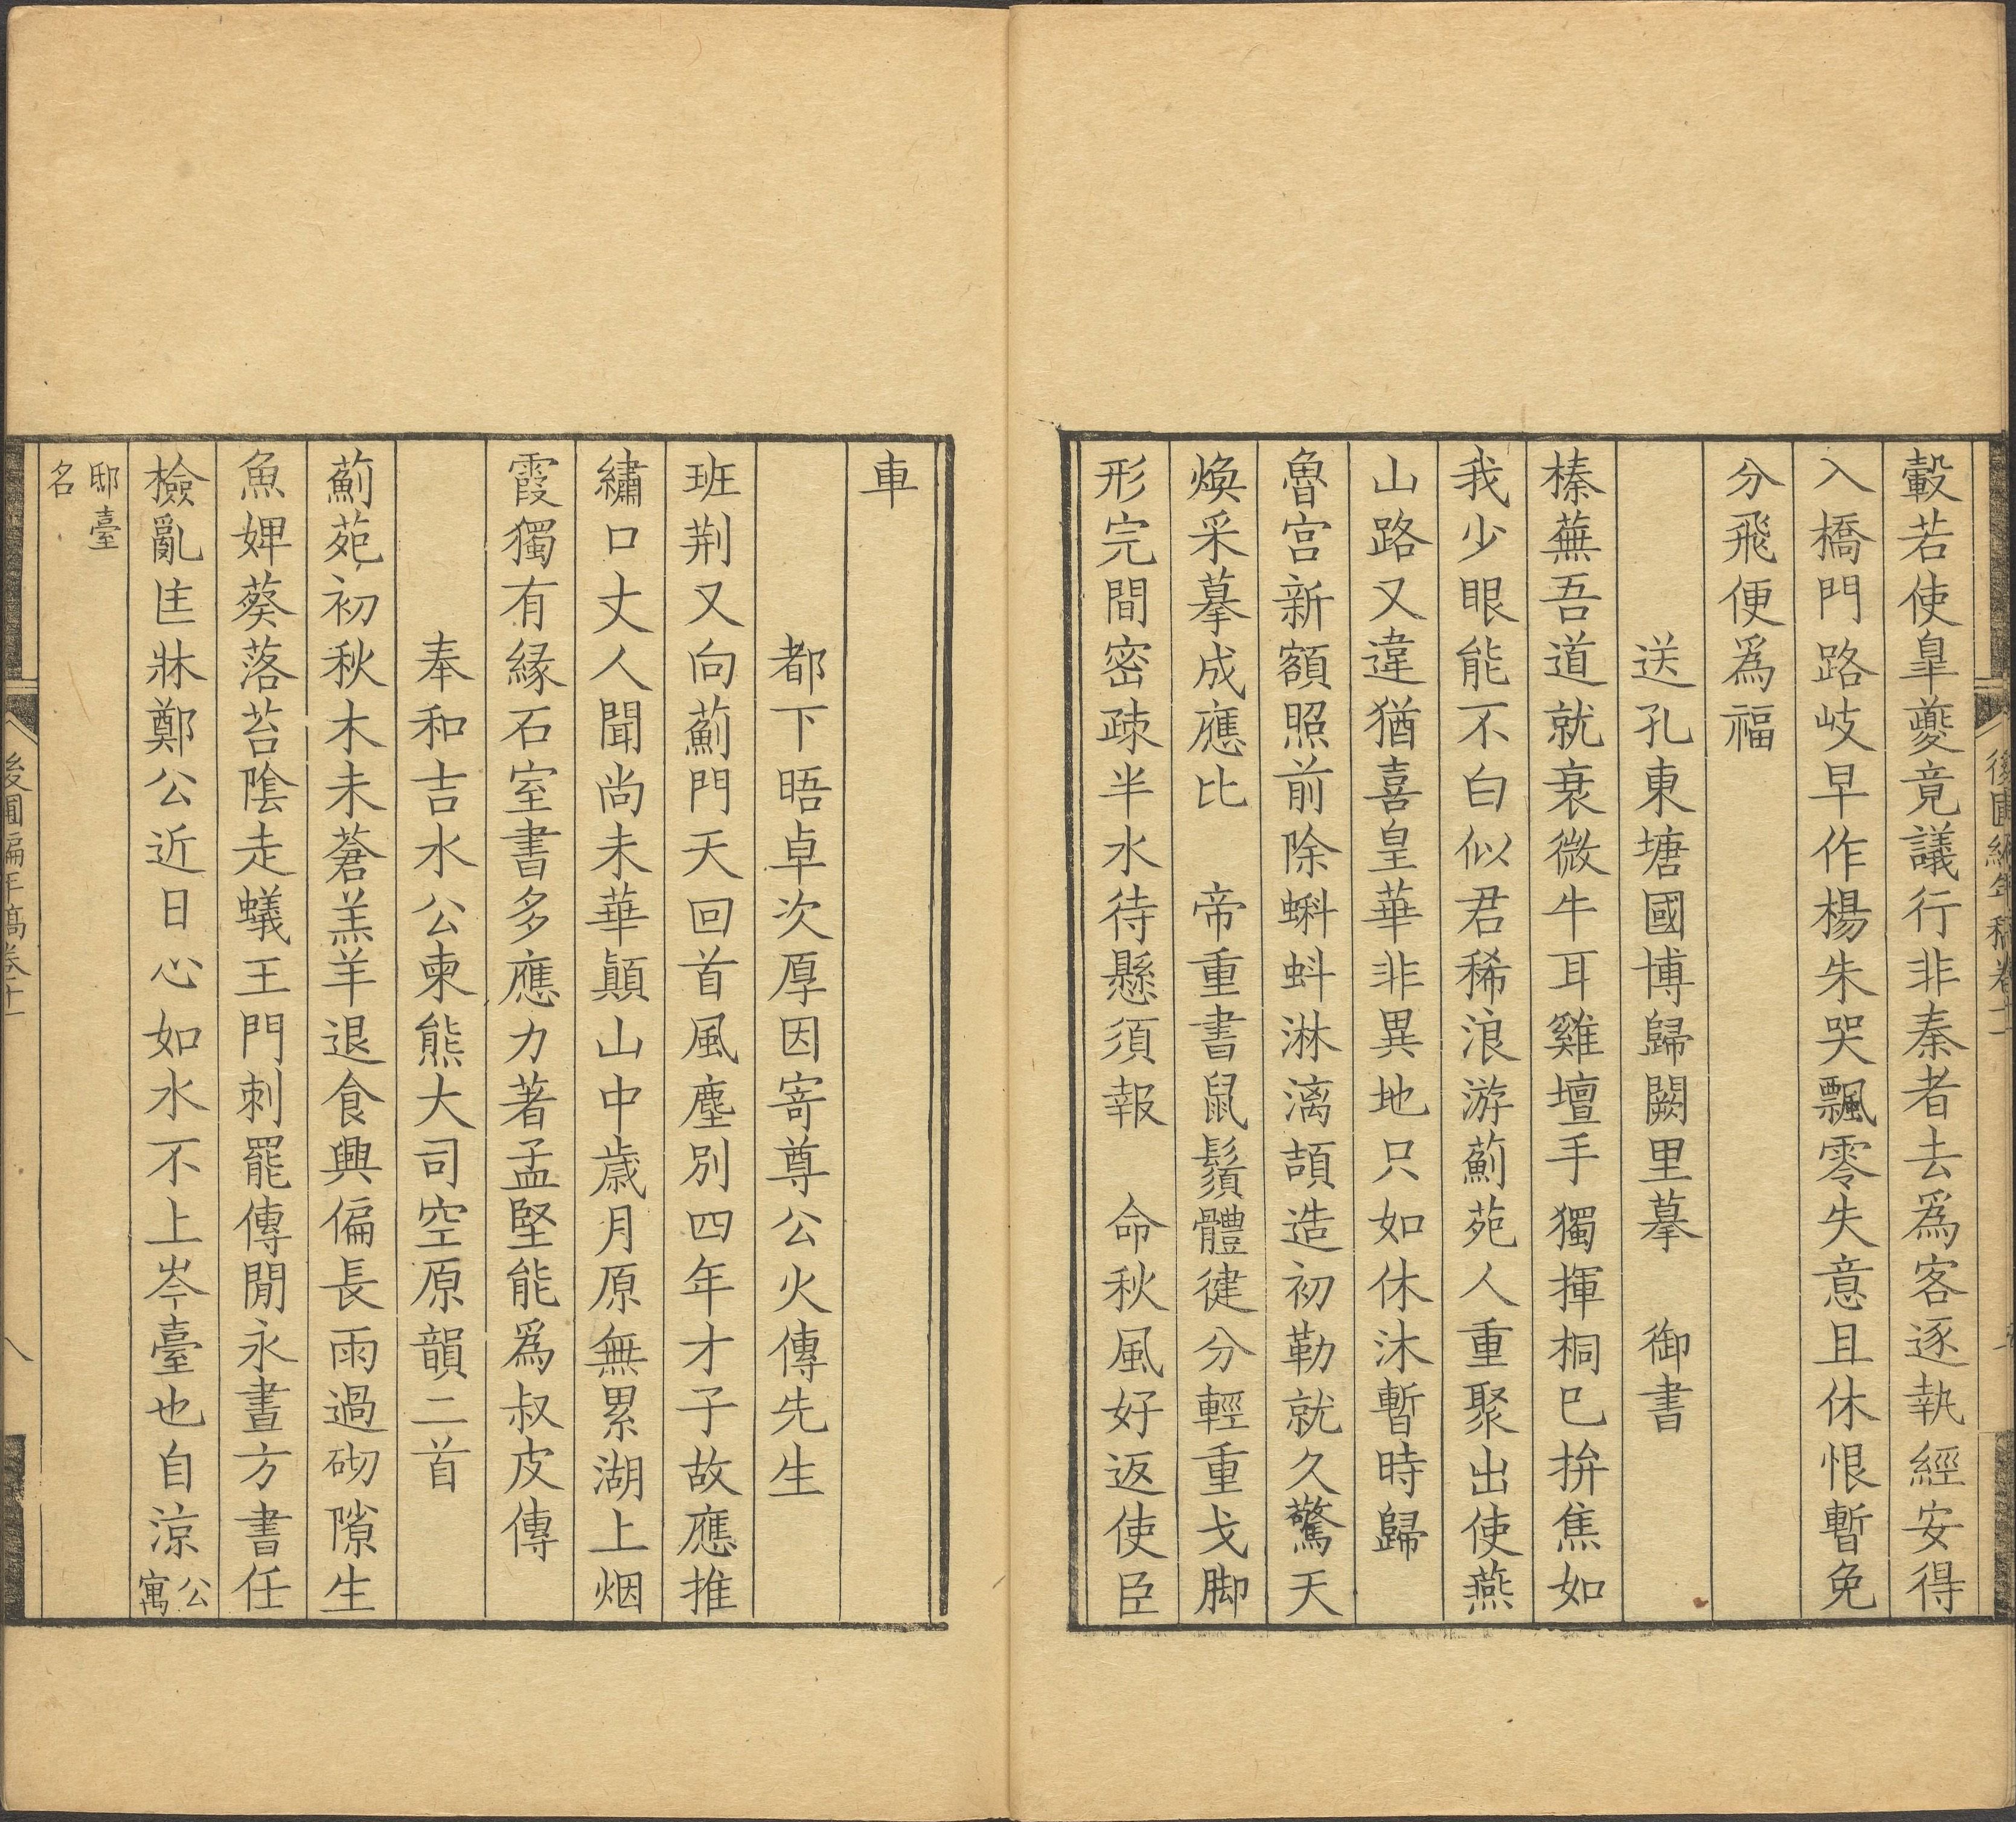 轂若使臯夔竟議行非秦者去爲客逐執經安得
入橋門路岐早作楊朱哭飄零失意且休恨暫免
分飛便爲福
送孔東塘國博歸闕里摹　御書
榛蕪吾道就衰微牛耳雞壇手獨揮桐已拚焦如
我少眼能不白似君稀浪游薊苑人重聚出使燕
山路又違猶喜皇華非異地只如休沐暫時歸
魯宮新額照前除蝌蚪淋漓頡造初勒就久驚天
煥采摹成應比　帝重書鼠鬚體健分輕重戈脚
形完間密疎半水待懸須報　命秋風好返使臣
車
都下晤卓次厚因寄尊公火傳先生
班荆又向薊門天回首風塵別四年才子故應推
繡口丈人聞尚未華顛山中歲月原無累湖上烟
霞獨有緣石室書多應力著孟堅能爲叔皮傳
奉和吉水公柬熊大司空原韻二首
薊苑初秋木未蒼羔羊退食興偏長雨過砌隙生
魚婢葵落苔陰走蟻王門刺罷傳閒永晝方書任
檢亂匡牀鄭公近日心如水不上岑臺也自涼公寓
邸臺名
後圃編年稿卷十一
八